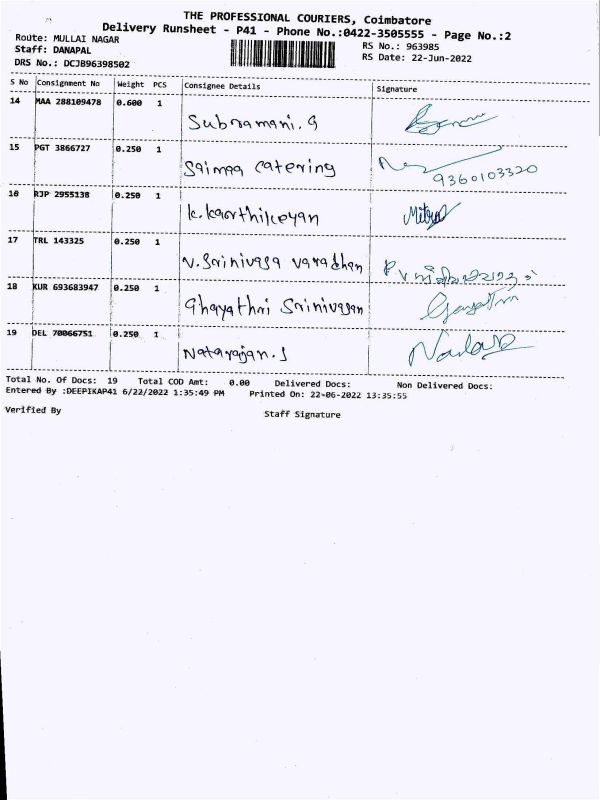 THE PROFESSIONAL COURIERS, Coimbatore
Delivery Runsheet - P41 - Phone No.:0422-3505555 - Page No.:2
Route: MULLAI NAGAR RS No.: 963985
Staff: DANAPAL RS Date: 22-Jun-2022
DRS No.: DCJB96398502
S No Consignment No Weight PCS Consignee Details Signature
14 MAA 288109478 0.600 1
Subramani. G
15 PGT 3866727 0.250 1
Saimaa Catering 9360103320
16 RJP 2955138 0.250 1
K. Karthikeyan Mitra
17 TRL 143325 0.250 1
V. Srinivasa Varadhan
18 KUR 693683947 0.250 1
Ghayathri Srinivasan
19 DEL 70066751 0.250 1
Natarajan. J
Total No. Of Docs: 19 Total COD Amt: 0.00 Delivered Docs: Non Delivered Docs:
Entered By :DEEPIKAP41 6/22/2022 1:35:49 PM Printed On: 22-06-2022 13:35:55
Verified By Staff Signature